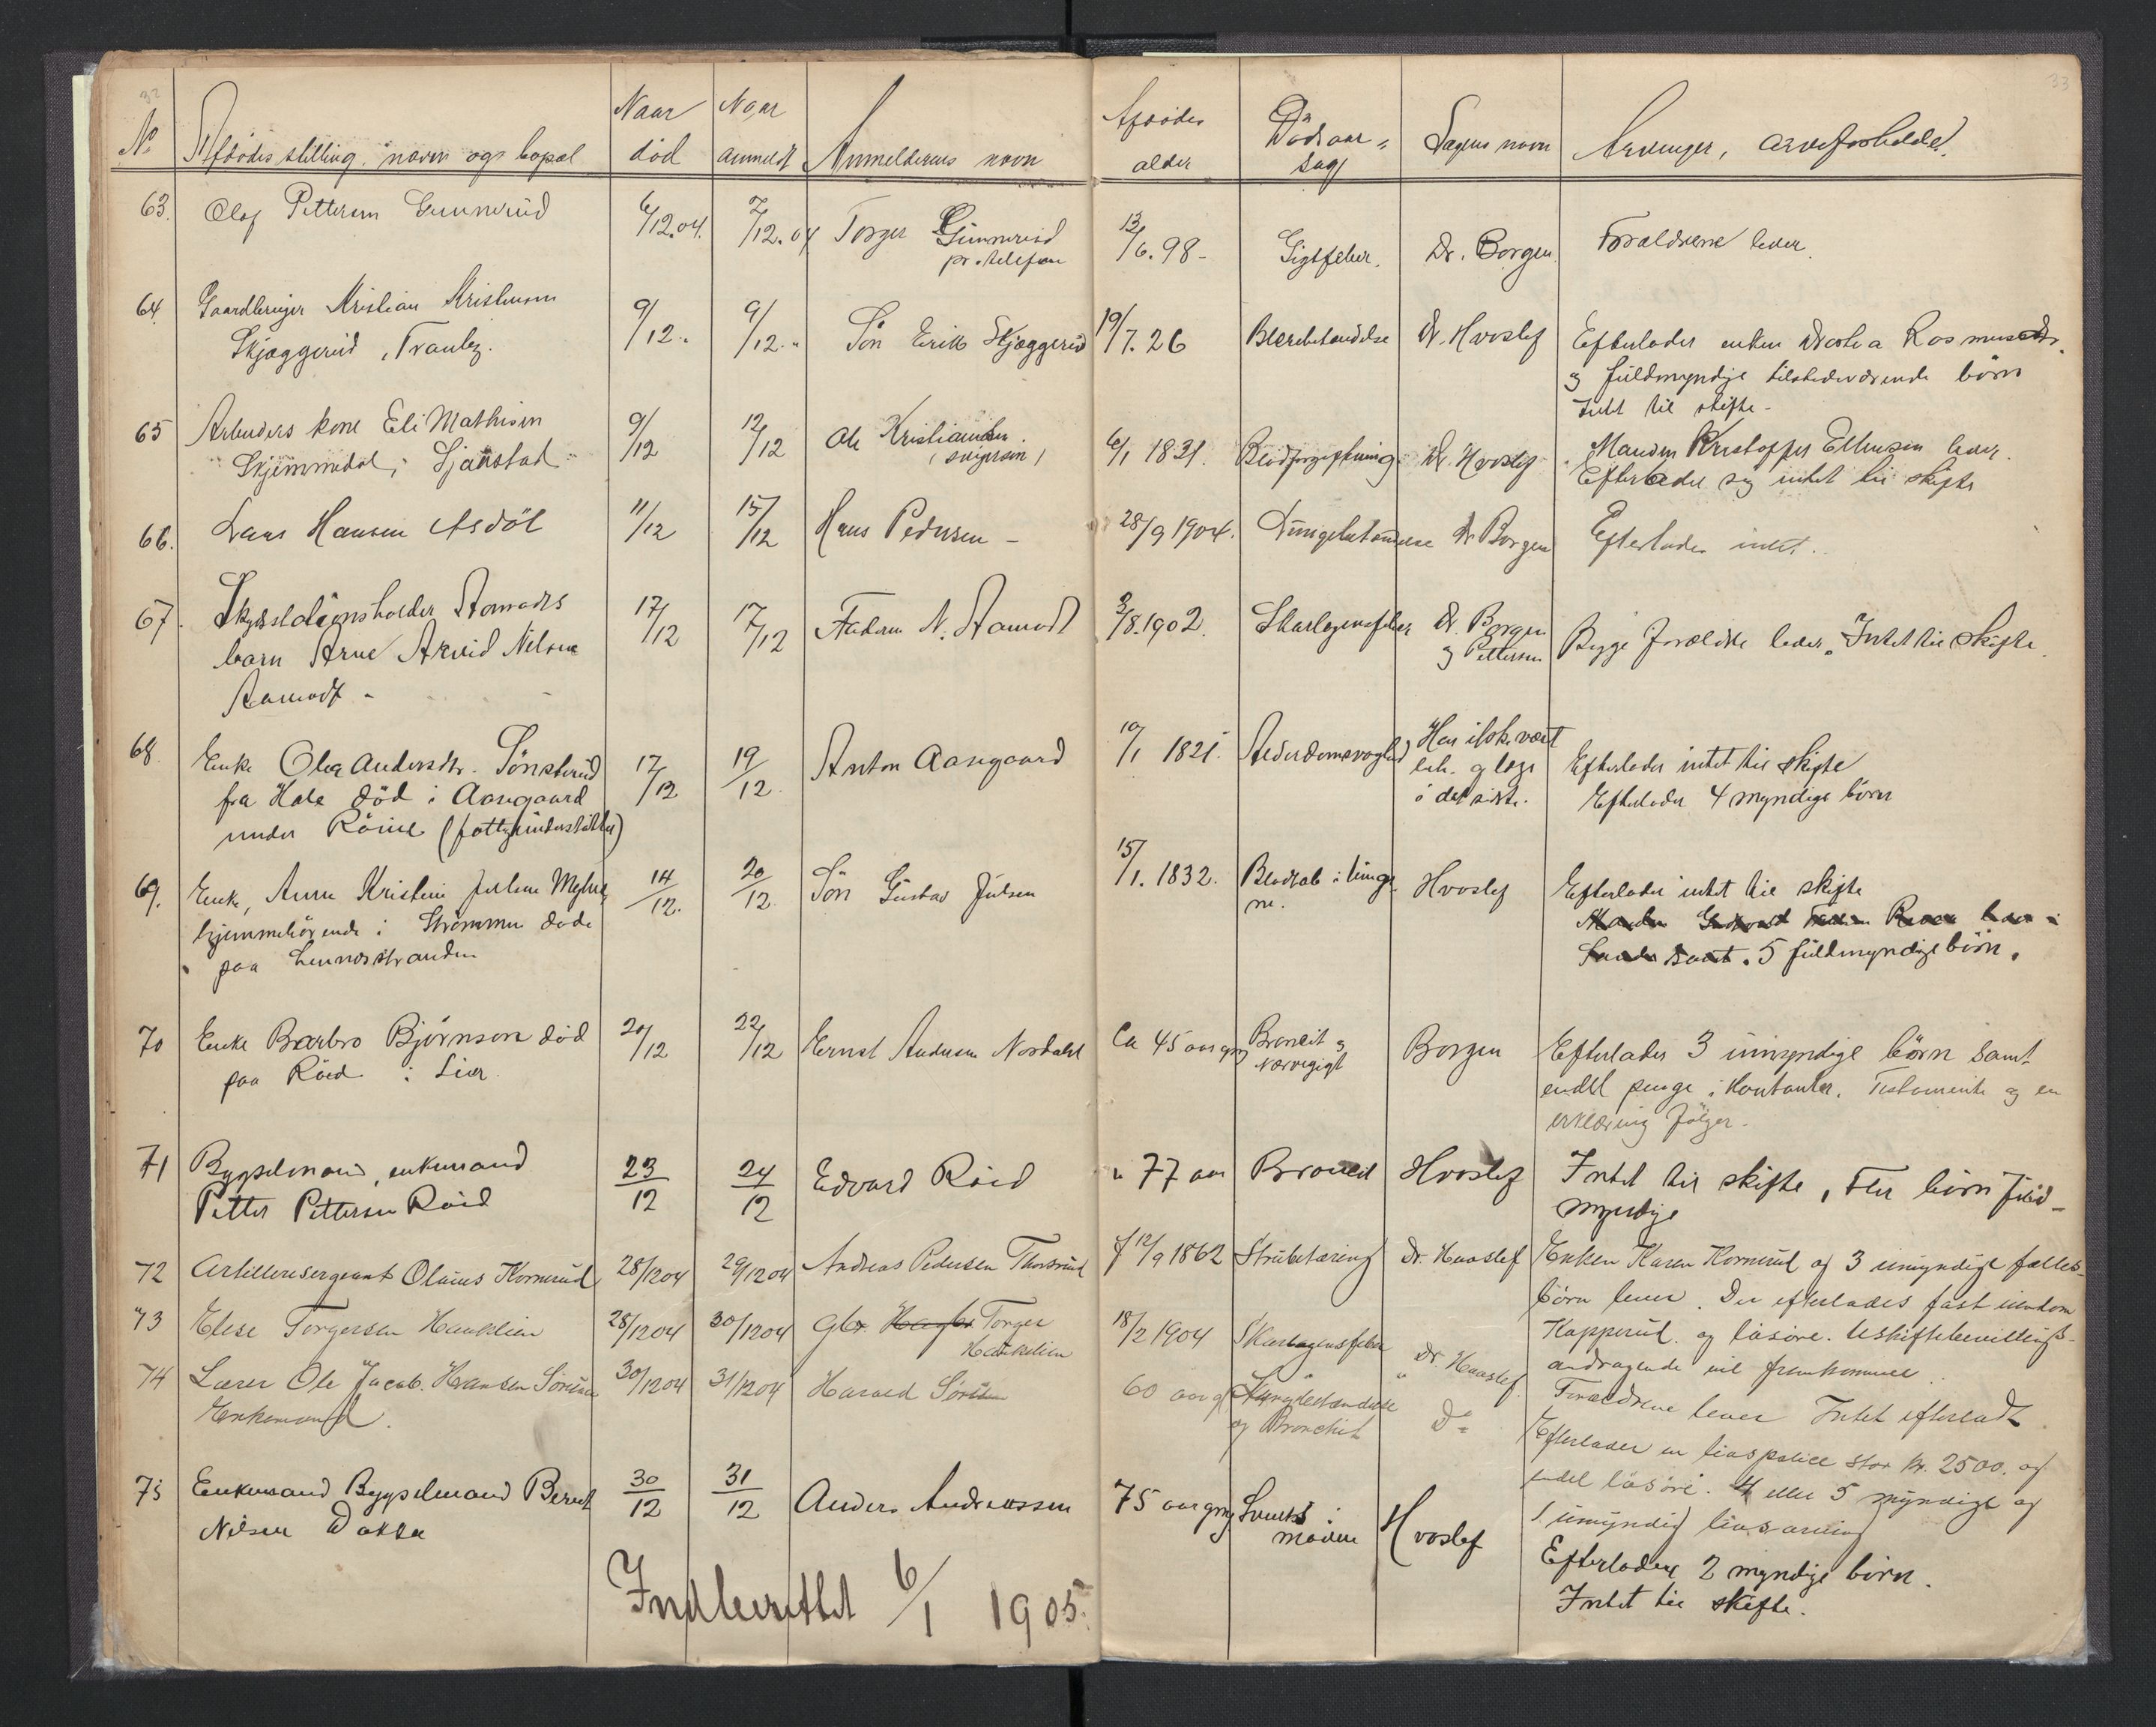 32
33
No
Afdödes stilling, navn og bopæl
Naar död
Naar anmeldt
Anmelderens navn
Afdödes alder
Dödsaarsag
Lægens navn
Arvinger, arveforholdd.
63. Olaf Pettersen Gunnerud 6/12.04. 7/12.04 Torger Gunnerud
pr. telefon
13/6.98- Gigtfeber. Dr. Borgen Forældrene lever.
64. Gaardbruger Kristian Kristensen
Skjæggerud, Tranby.
9/12. " 9/12. " Sön Erik Skjæggerud
19/7. 26 Blærebetændelse Dr. Hvoslef Efterlader enken Dortea Rasmusdtr.
og fuldmyndige tilstedeværende börn
Intet til skifte-
65 Arbeiders kone Eli Mathisen
Skjimmedal, Sjaastad
9/12 12/12 Ole Kristiansen
(svigersön)
6/1 1831. Blodforgiftning Dr. Hvoslef Manden Kristoffer Ellensen lever.
Efterlader sig intet til skifte
66. Lars Hansen Asdöl 11/12 15/12 Hans Pedersen -
28/9 1904. Lungebetændelse Dr Borgen Efterlader intet.
67. Skydsstationsholder Aamodts
barn Arne Arvid Nilsen
Aamodt -
17/12 17/12 Faderen N. Aamodt
3/8.1902. Skarlagensfeber Dr. Borgen
og Pettersen
Begge forældre lever. Intet til skifte.
68. Enke Olea Andersdtr. Sönsterud
fra Hole död i Aasgaard
under (fattigunderstöttet)
17/12 19/12 Anton Aasgaard
10/1 1821. Alderdomsvaghed Har ikke vært
beh. af læge
i det sidste.
Efterlader intet til skifte
Efterlader 4 myndige börn
69. Enke, Anne Kristine Julsen Myhre,
hjemmehörende i Strömmen döde
paa Lennesstranden
14/12. 20/12 Sön Gustav Julsen
15/1. 1832. Blodtab i lunge
ne.
Hvoslef Efterlader intet til skifte
5 fuldmyndige börn.
70 Enke Barbro Björnson död
paa Röed i Lier
20/12 22/12 Ernst Andersen Nordahl
Ca 45 aar gml Bronkit og
nervegigt
Borgen Efterlader 3 umyndige börn samt
endel penge i kontanter. Testamente og en
erklæring fölger.
71 Bygselmand, enkemand
Petter Pettersen Röed
23/12 24/12 Edvard Röed
" 77 aar Bronkit Hvoslef Intet til skifte, Fler börn fuld-
myndige
72 Artillerisergeant Olaus Kornerud 28/12 04 29/12 04 Andreas Pedersen Thorsrud
f 12/9 1862 Strubetæring Dr. Hvoslef Enken Karen Kornerud og 3 umyndige fælles-
börn lever. Der efterlades fast eiendom
Kopperud og lösöre. Uskiftebevillings-
andragende vil fremkomme.
73 Elise Torgersen Haukelien 28/12 04 30/12 04 Gbr. Torger
Haukelien
18/2 1904 Skarlagensfeber " Dr. Hvoslef Forældrene lever Intet efterladt
74 Lærer Ole Jacob Hansen Sörensen
Enkemand.
30/12 04 31/12 04 Harald Sörensen
60 aar gl Lungebetændelse
og Bronchit
Do
Efterlader en livspolice stor kr. 2500. og
endel lösöre. 4 eller 5 myndige og
1 umyndig livsarving
75 Enkemand Bygselmand Bernt
Nilsen Dokka
30/12 31/12 Anders Andreassen
75 aar gml Hvoslef
Efterlader 2 myndige börn.
Intet til skifte.
Indberettet 6/1 1905.